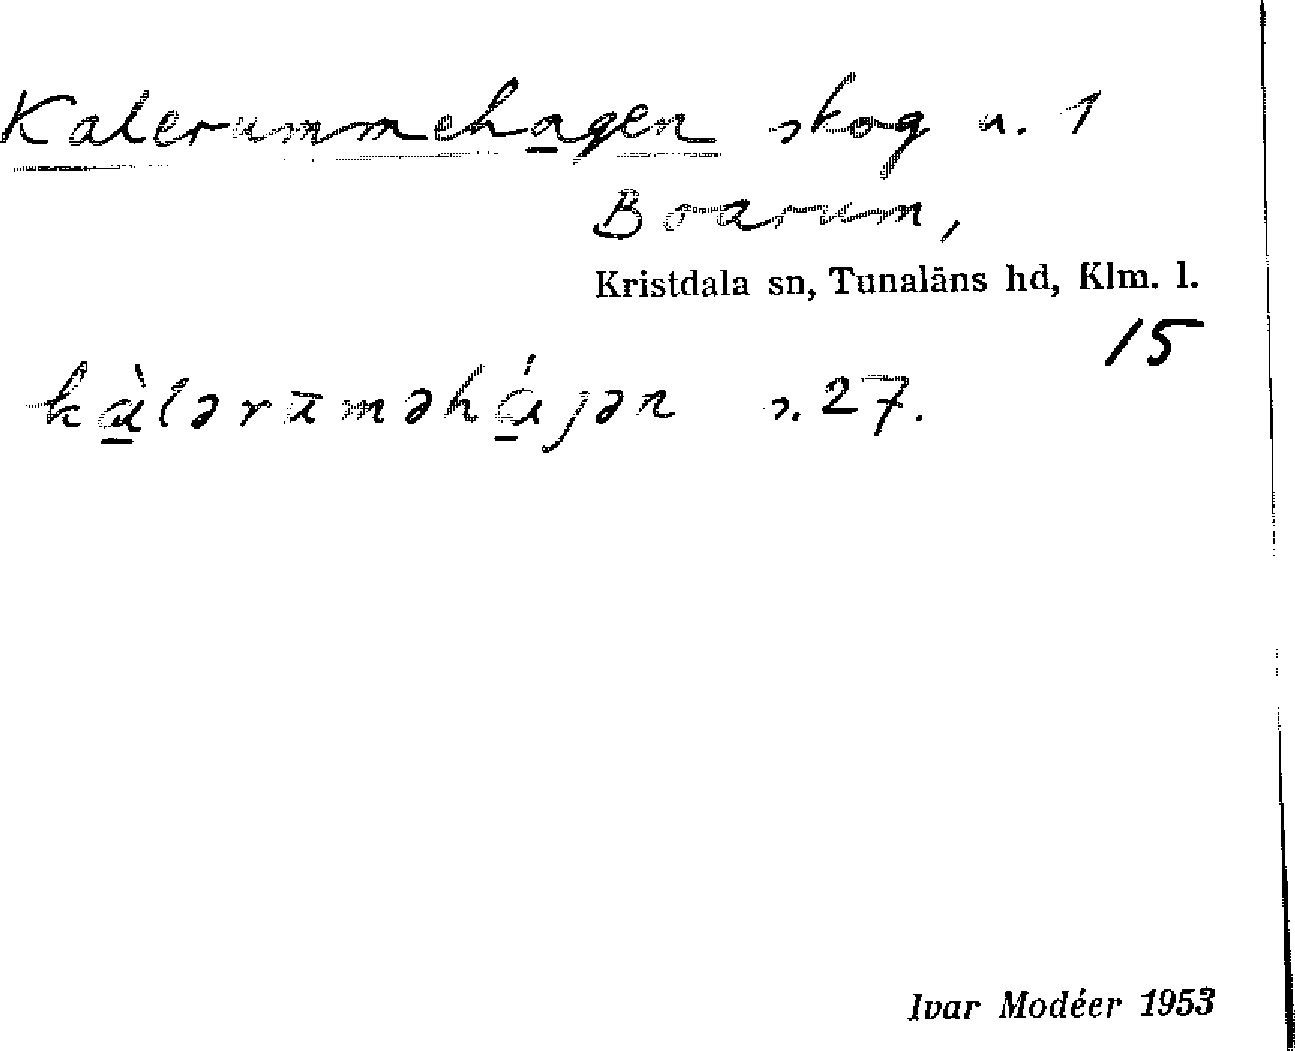 Kalerummehagen skog u. 1
Boarum,
Kristdala sn, Tunaläns hd, Klm. l.
15
kàləruməhájən s. 27.
Ivar Modéer 1953